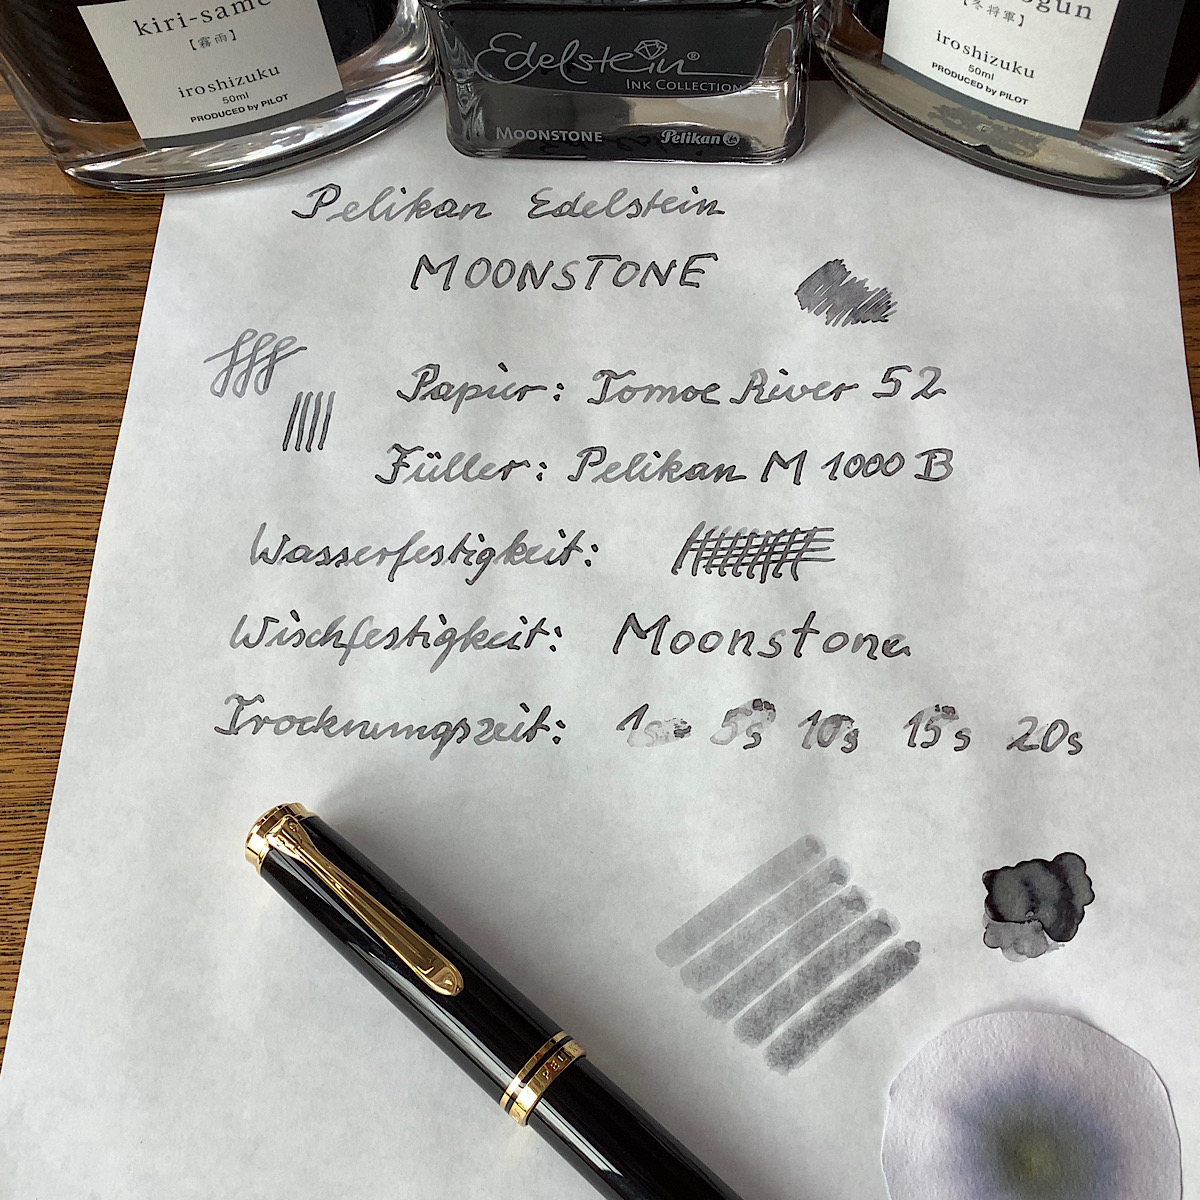 kiri-same
【霧雨】
iroshizuku
50ml
PRODUCED by PILOT
Edelstein®
INK COLLECTION
MOONSTONE Pelikan
ogun
【冬将軍】
iroshizuku
50ml
PRODUCED by PILOT
Pelikan Edelstein
MOONSTONE
fff
Papier: Tomoe River 52
Füller: Pelikan M 1000 B
Wasserfestigkeit:
Wischfestigkeit: Moonstone
Trocknungszeit: 1s 5s 10s 15s 20s